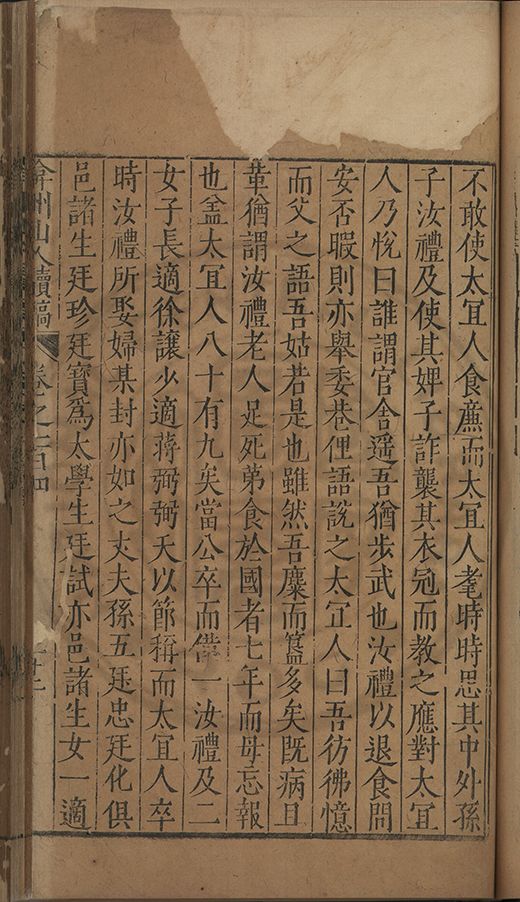 不敢使太宜人食薦而太宜人耄時時思其中外孫
子汝禮及使其婢子詐襲其衣冠而教之應對太宜
人乃悅曰誰謂官舍遥吾猶步武也汝禮以退食問
安否暇則亦舉委巷俚語說之太宜人曰吾彷彿憶
而父之語吾姑若是也雖然吾麋而簋多矣既病且
革猶謂汝禮老人足死第食於國者七年而毋忘報
也盖太宜人八十有九矣當公卒而僅一汝禮及二
女子長適徐讓少適蔣弼弼夭以節稱而太宜人卒
時汝禮所娶婦某封亦如之丈夫孫五廷忠廷化俱
邑諸生廷珍廷寶爲太學生廷試亦邑諸生女一適
弇州山人續稿 卷之一百四